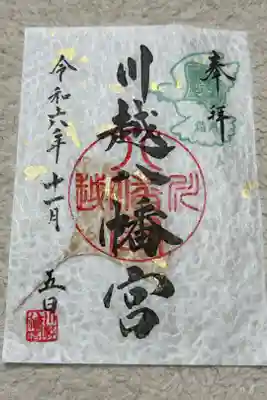 奉拝
川越八幡宮
令和六年十一月五日